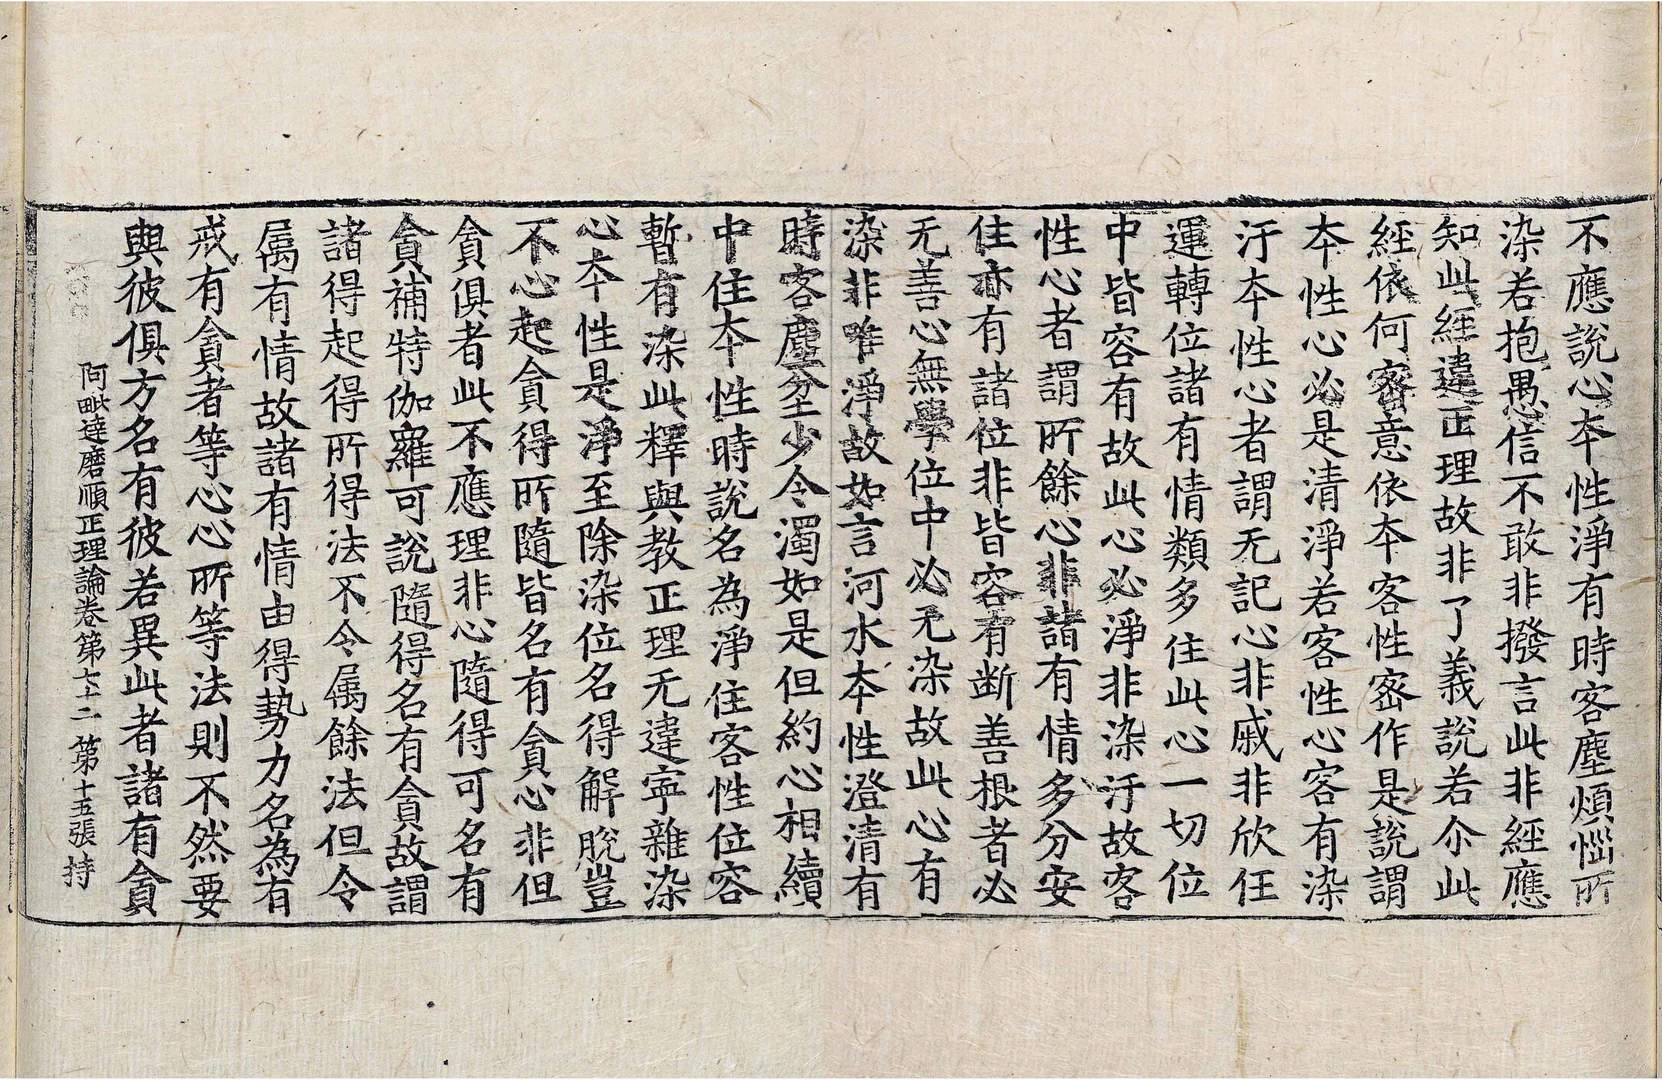 不應說心夲性淨有時客塵煩惱所
染若抱愚信不敢非撥言此非經應
知此經違正理故非了義說若尒此
經依何密意依夲客性密作是說謂
夲性心必是清淨若客性心容有染
汙夲性心者謂无記心非慼非欣任
運轉位諸有情類多住此心一切位
中皆容有故此心必淨非染汙故客
性心者謂所餘心非諸有情多分安
住亦有諸位非皆容有断善根者必
无善心無學位中必无染故此心有
染非唯淨故如言河水夲性澄清有
時客塵坌少令濁如是但約心相續
中住夲性時說名為淨住客性位容
暫有染此釋與教正理无違寧雜染
心夲性是淨至除染位名得解脫豈
不心起貪得所隨皆名有貪心非但
貪俱者此不應理非心隨得可名有
貪補特伽羅可說隨得名有貪故謂
諸得起得所得法不令属餘法但令
属有情故諸有情由得勢力名為有
戒有貪者等心心所等法則不然要
與彼俱方名有彼若異此者諸有貪
阿毗達磨順正理論卷第七十二 第十五張 持